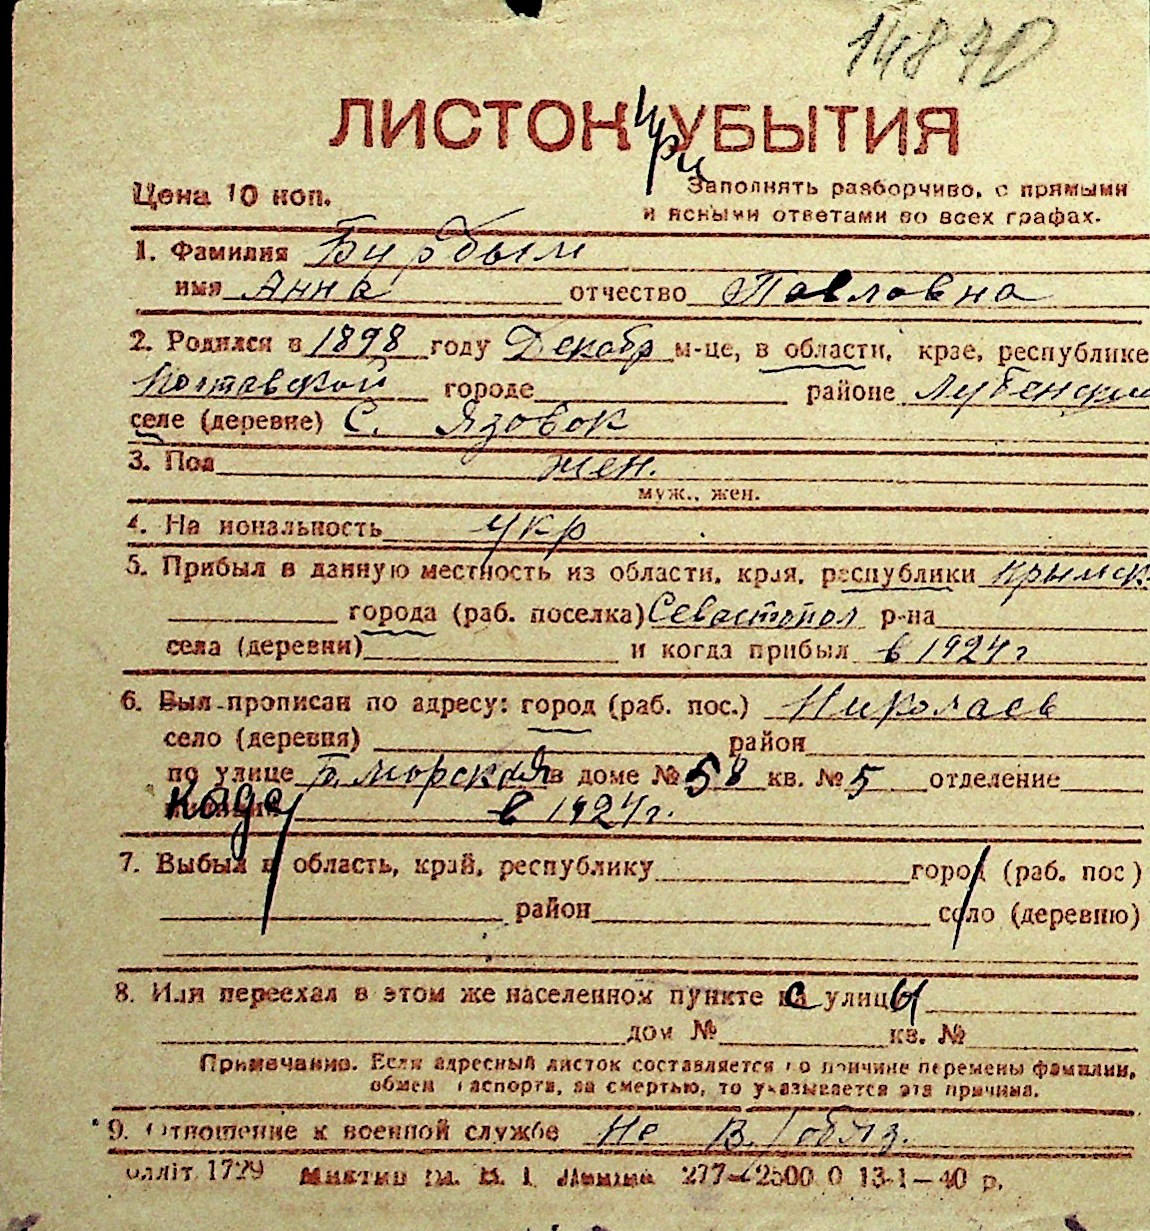 14840
ЛИСТОК при УБЫТИЯ
Цена 10 коп.
Заполнять разборчиво, с прямыми
и ясными ответами во всех графах.
1. Фамилия Бурдым
имя Анна отчество Павловна
2. Родился в 1898 году Декабр м-це, в области, крае, республике
Полтавской городе районе Лубенский
селе (деревне) С. Язовок
3. Пол жен.
муж., жен.
4. На иональность укр
5. Прибыл в данную местность из области, края, республики Крымск
города (раб. поселка) Севастопол р-на
села (деревни) и когда прибыл в 1924 г
6. Был прописан по адресу: город (раб. пос.) Николаев
село (деревня) район
по улице Б. Морская в доме № 58 кв. № 5 отделение
в 1924 г.
7. Выбыл в область, край, республику город (раб. пос)
район село (деревню)
8. Или переехал в этом же населенном пункте с улицы
дом № кв. №
Примечание. Если адресный листок составляется по причине перемены фамилии,
обмен паспорта, за смертью, то указывается эта причина.
9. Отношение к военной службе Не в/обяз.
Оллiт. 1729 277—2500 0 13-1—40 р.